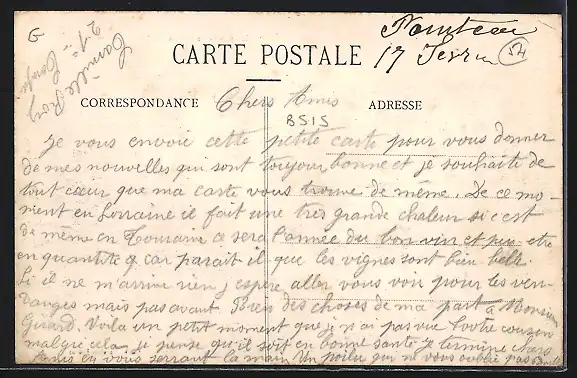 G
Camille
CARTE POSTALE
17
54
CORRESPONDANCE
Chers Amis
ADRESSE
BSIS
Je vous envoie cette petite carte pour vous donner
de mes nouvelles qui sont toujour bonne et je souhaite de
tout cœur que ma carte vous trouve de même. De ce mo-
ment en Lorraine il fait une tres grande chaleur si c'est
de même en Touraine ce sera l'année du bon vin et peu-etre
en quantite car parait il que les vignes sont bien belle
Si il ne m'arrive rien j'espere aller vous voir pour les ven-
danges mais pas avant Bien des choses de ma part a Monsieur
Girard. Voila un petit moment que je n'ai pas vue votre cousin
malgré cela je pense qu'il soit en bonne santé je termine chers
Amis en vous serrant la main Un poilu qui ne vous oublie pas